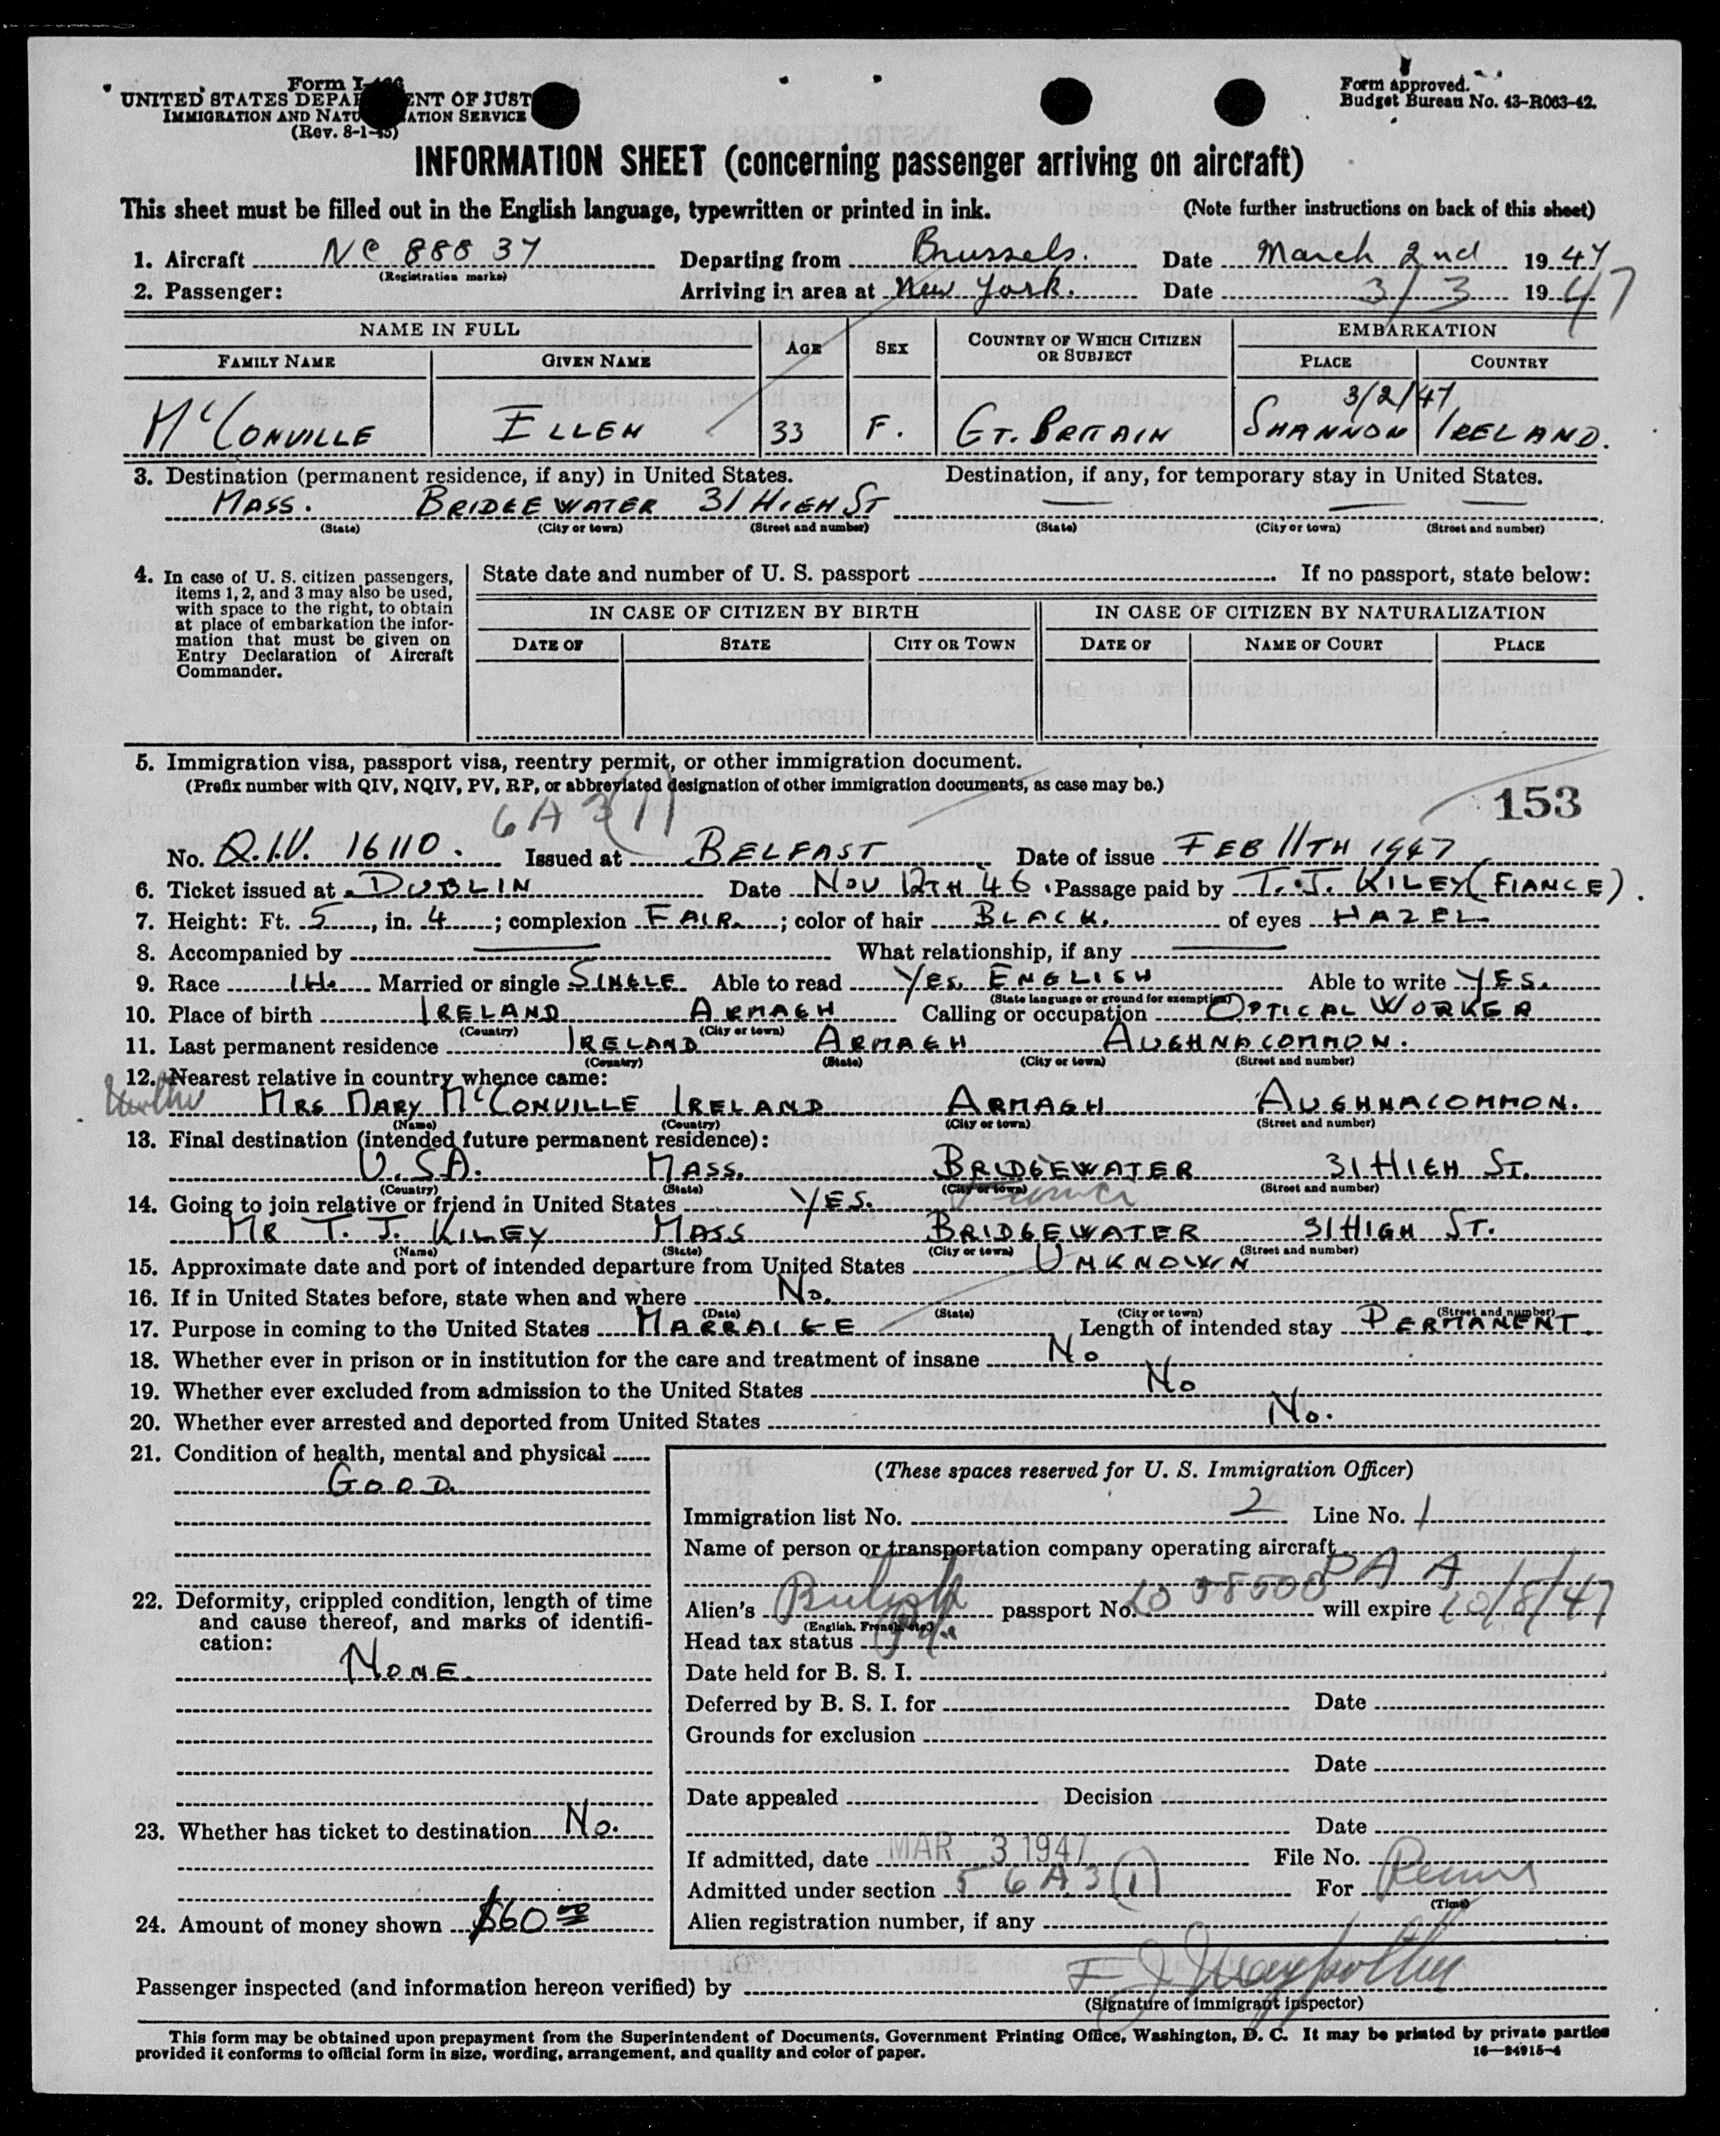 Form I-466
UNITED STATES DEPARTMENT OF JUSTICE
IMMIGRATION AND NATURALIZATION SERVICE
(Rev. 8-1-45)
Form approved.
Budget Bureau No. 43-R063-42.
INFORMATION SHEET (concerning passenger arriving on aircraft)
This sheet must be filled out in the English language, typewritten or printed in ink. (Note further instructions on back of this sheet)
1. Aircraft NC 88837 Departing from Brussels. Date March 2nd 1947
(Registration marks)
2. Passenger: Arriving in area at New York. Date 3/3 1947
NAME IN FULL AGE SEX COUNTRY OF WHICH CITIZEN OR SUBJECT EMBARKATION
FAMILY NAME GIVEN NAME PLACE COUNTRY
3/2/47
McCONVILLE ELLEN 33 F. GT. BRITAIN SHANNON IRELAND.
3. Destination (permanent residence, if any) in United States. Destination, if any, for temporary stay in United States.
MASS. BRIDGEWATER 31 HIGH ST
(State) (City or town) (Street and number) (State) (City or town) (Street and number)
4. In case of U. S. citizen passengers, items 1, 2, and 3 may also be used, with space to the right, to obtain at place of embarkation the information that must be given on Entry Declaration of Aircraft Commander.
State date and number of U. S. passport If no passport, state below:
IN CASE OF CITIZEN BY BIRTH IN CASE OF CITIZEN BY NATURALIZATION
DATE OF STATE CITY OR TOWN DATE OF NAME OF COURT PLACE
5. Immigration visa, passport visa, reentry permit, or other immigration document.
(Prefix number with QIV, NQIV, PV, RP, or abbreviated designation of other immigration documents, as case may be.)
6A3(1) 153
No. Q.I.V. 16110. Issued at BELFAST Date of issue FEB 11TH 1947
6. Ticket issued at DUBLIN Date NOV 12TH 46. Passage paid by T. J. KILEY (FIANCE).
7. Height: Ft. 5, in. 4; complexion FAIR.; color of hair BLACK. of eyes HAZEL
8. Accompanied by What relationship, if any
9. Race IH. Married or single SINGLE Able to read YES, ENGLISH Able to write YES.
(State language or ground for exemption)
10. Place of birth IRELAND ARMAGH Calling or occupation OPTICAL WORKER
(Country) (City or town)
11. Last permanent residence IRELAND ARMAGH AUGHNACOMMON.
(Country) (State) (City or town) (Street and number)
12. Nearest relative in country whence came:
MRS MARY McCONVILLE IRELAND ARMAGH AUGHNACOMMON.
(Name) (Country) (City or town) (Street and number)
13. Final destination (intended future permanent residence):
U.S.A. MASS. BRIDGEWATER 31 HIGH ST.
(Country) (State) (City or town) (Street and number)
14. Going to join relative or friend in United States YES.
MR T. J. KILEY MASS BRIDGEWATER 31 HIGH ST.
(Name) (State) (City or town) (Street and number)
15. Approximate date and port of intended departure from United States UNKNOWN
16. If in United States before, state when and where NO.
(Date) (State) (City or town) (Street and number)
17. Purpose in coming to the United States MARRAIGE Length of intended stay PERMANENT.
18. Whether ever in prison or in institution for the care and treatment of insane No
19. Whether ever excluded from admission to the United States No
20. Whether ever arrested and deported from United States No.
21. Condition of health, mental and physical
GOOD.
22. Deformity, crippled condition, length of time and cause thereof, and marks of identification:
NONE.
23. Whether has ticket to destination No.
24. Amount of money shown $60 00
(These spaces reserved for U. S. Immigration Officer)
Immigration list No. 2 Line No. 1
Name of person or transportation company operating aircraft
PAA
Alien's British passport No. will expire 10/8/47
(English, French, etc.)
Head tax status Pd.
Date held for B. S. I.
Deferred by B. S. I. for Date
Grounds for exclusion
Date
Date appealed Decision
Date
If admitted, date MAR 3 1947 File No.
Admitted under section 5 6A3(1) For
(Time)
Alien registration number, if any
Passenger inspected (and information hereon verified) by
(Signature of immigrant inspector)
This form may be obtained upon prepayment from the Superintendent of Documents, Government Printing Office, Washington, D. C. It may be printed by private parties
provided it conforms to official form in size, wording, arrangement, and quality and color of paper. 16—24915-4